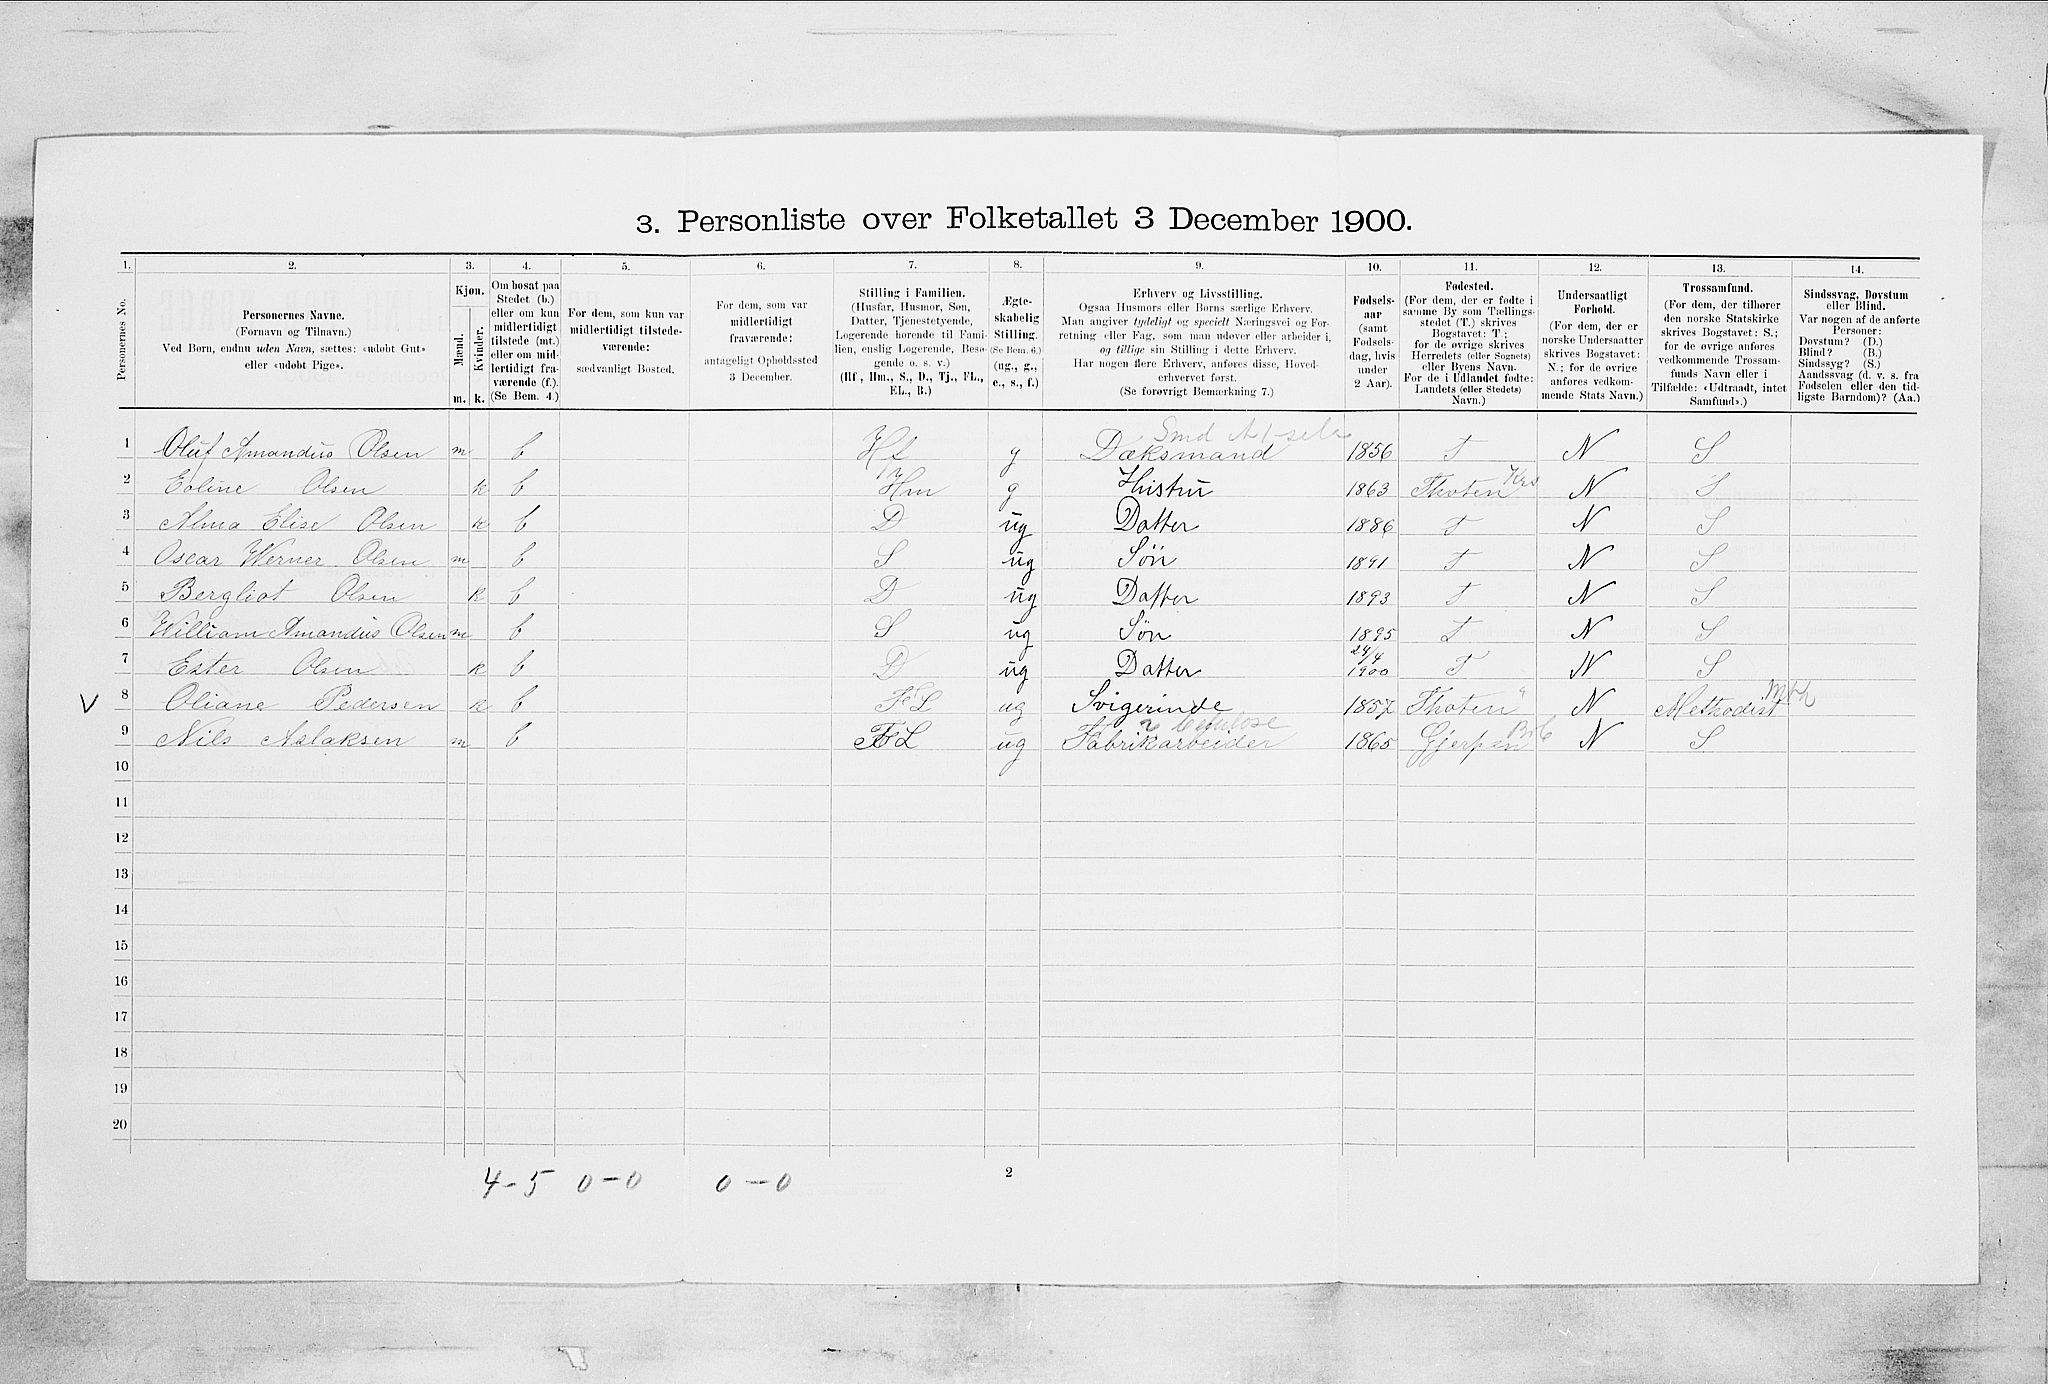 3. Personliste over Folketallet 3 December 1900.
1. 2. 3. 4. 5. 6. 7. 8. 9. 10. 11. 12. 13. 14.
Personernes No.
Personernes Navne.
(Fornavn og Tilnavn.)
Ved Børn, endnu uden Navn, sættes: «udøbt Gut»
eller «udøbt Pige».
Kjøn.
Mænd.
Kvinder.
m. k.
Om bosat paa
Stedet (b.)
eller om kun
midlertidigt
tilstede (mt.)
eller om mid-
lertidigt fra-
værende (f.).
(Se Bem. 4.)
For dem, som kun var
midlertidigt tilstede-
værende:
sædvanligt Bosted.
For dem, som var
midlertidigt
fraværende:
antageligt Opholdssted
3 December.
Stilling i Familien.
(Husfar, Husmor, Søn,
Datter, Tjenestetyende,
Logerende hørende til Fami-
lien, enslig Logerende, Besø-
gende o. s. v.)
(Hf., Hm., S., D., Tj., FL.,
EL., B.)
Ægte-
skabelig
Stilling.
(Se Bem. 6.)
(ug., g.,
e., s., f.)
Erhverv og Livsstilling.
Ogsaa Husmors eller Børns særlige Erhverv.
Man angiver tydeligt og specielt Næringsvei og For-
retning eller Fag, som man udøver eller arbeider i,
og tillige sin Stilling i dette Erhverv.
Har nogen flere Erhverv, anføres disse, Hoved-
erhvervet først.
(Se forøvrigt Bemærkning 7.)
Fødsels-
aar
(samt
Fødsels-
dag, hvis
under
2 Aar).
Fødested.
(For dem, der er fødte i
samme By som Tællings-
stedet (T.) skrives
Bogstavet: T;
for de øvrige skrives
Herredets (eller Sognets)
eller Byens Navn.
For de i Udlandet fødte:
Landets (eller Stedets)
Navn.)
Undersaatligt
Forhold.
(For dem, der er
norske Undersaatter
skrives Bogstavet:
N.; for de øvrige
anføres vedkom-
mende Stats Navn.)
Trossamfund.
(For dem, der tilhører
den norske Statskirke
skrives Bogstavet: S.;
for de øvrige anføres
vedkommende Trossam-
funds Navn eller i
Tilfælde: «Udtraadt, intet
Samfund».)
Sindssvag, Døvstum
eller Blind.
Var nogen af de anførte
Personer:
Døvstum? (D.)
Blind? (B.)
Sindssyg? (S.)
Aandssvag (d. v. s. fra
Fødselen eller den tid-
ligste Barndom)? (Aa.)
1 Oluf Amandus Olsen m b Hf g Dæksmand 1856 T N S
2 Eoline Olsen k b Hm g Hustru 1863 Thoten Krs N S
3 Alma Elise Olsen k b D ug Datter 1886 T N S
4 Oscar Werner Olsen m b S ug Søn 1891 T N S
5 Bergliot Olsen k b D ug Datter 1893 T N S
6 William Amandus Olsen m b S ug Søn 1895 T N S
7 Ester Olsen k b D ug Datter 24/4 1900 T N S
V 8 Oliane Pedersen k b FL ug Svigerinde 1857 Thoten " N Methodist
Celulose
9 Nils Aslaksen m b FL ug Fabrikarbeider 1865 Gjerpen N S
10
11
12
13
14
15
16
17
18
19
20
4-5 0-0 0-0
2